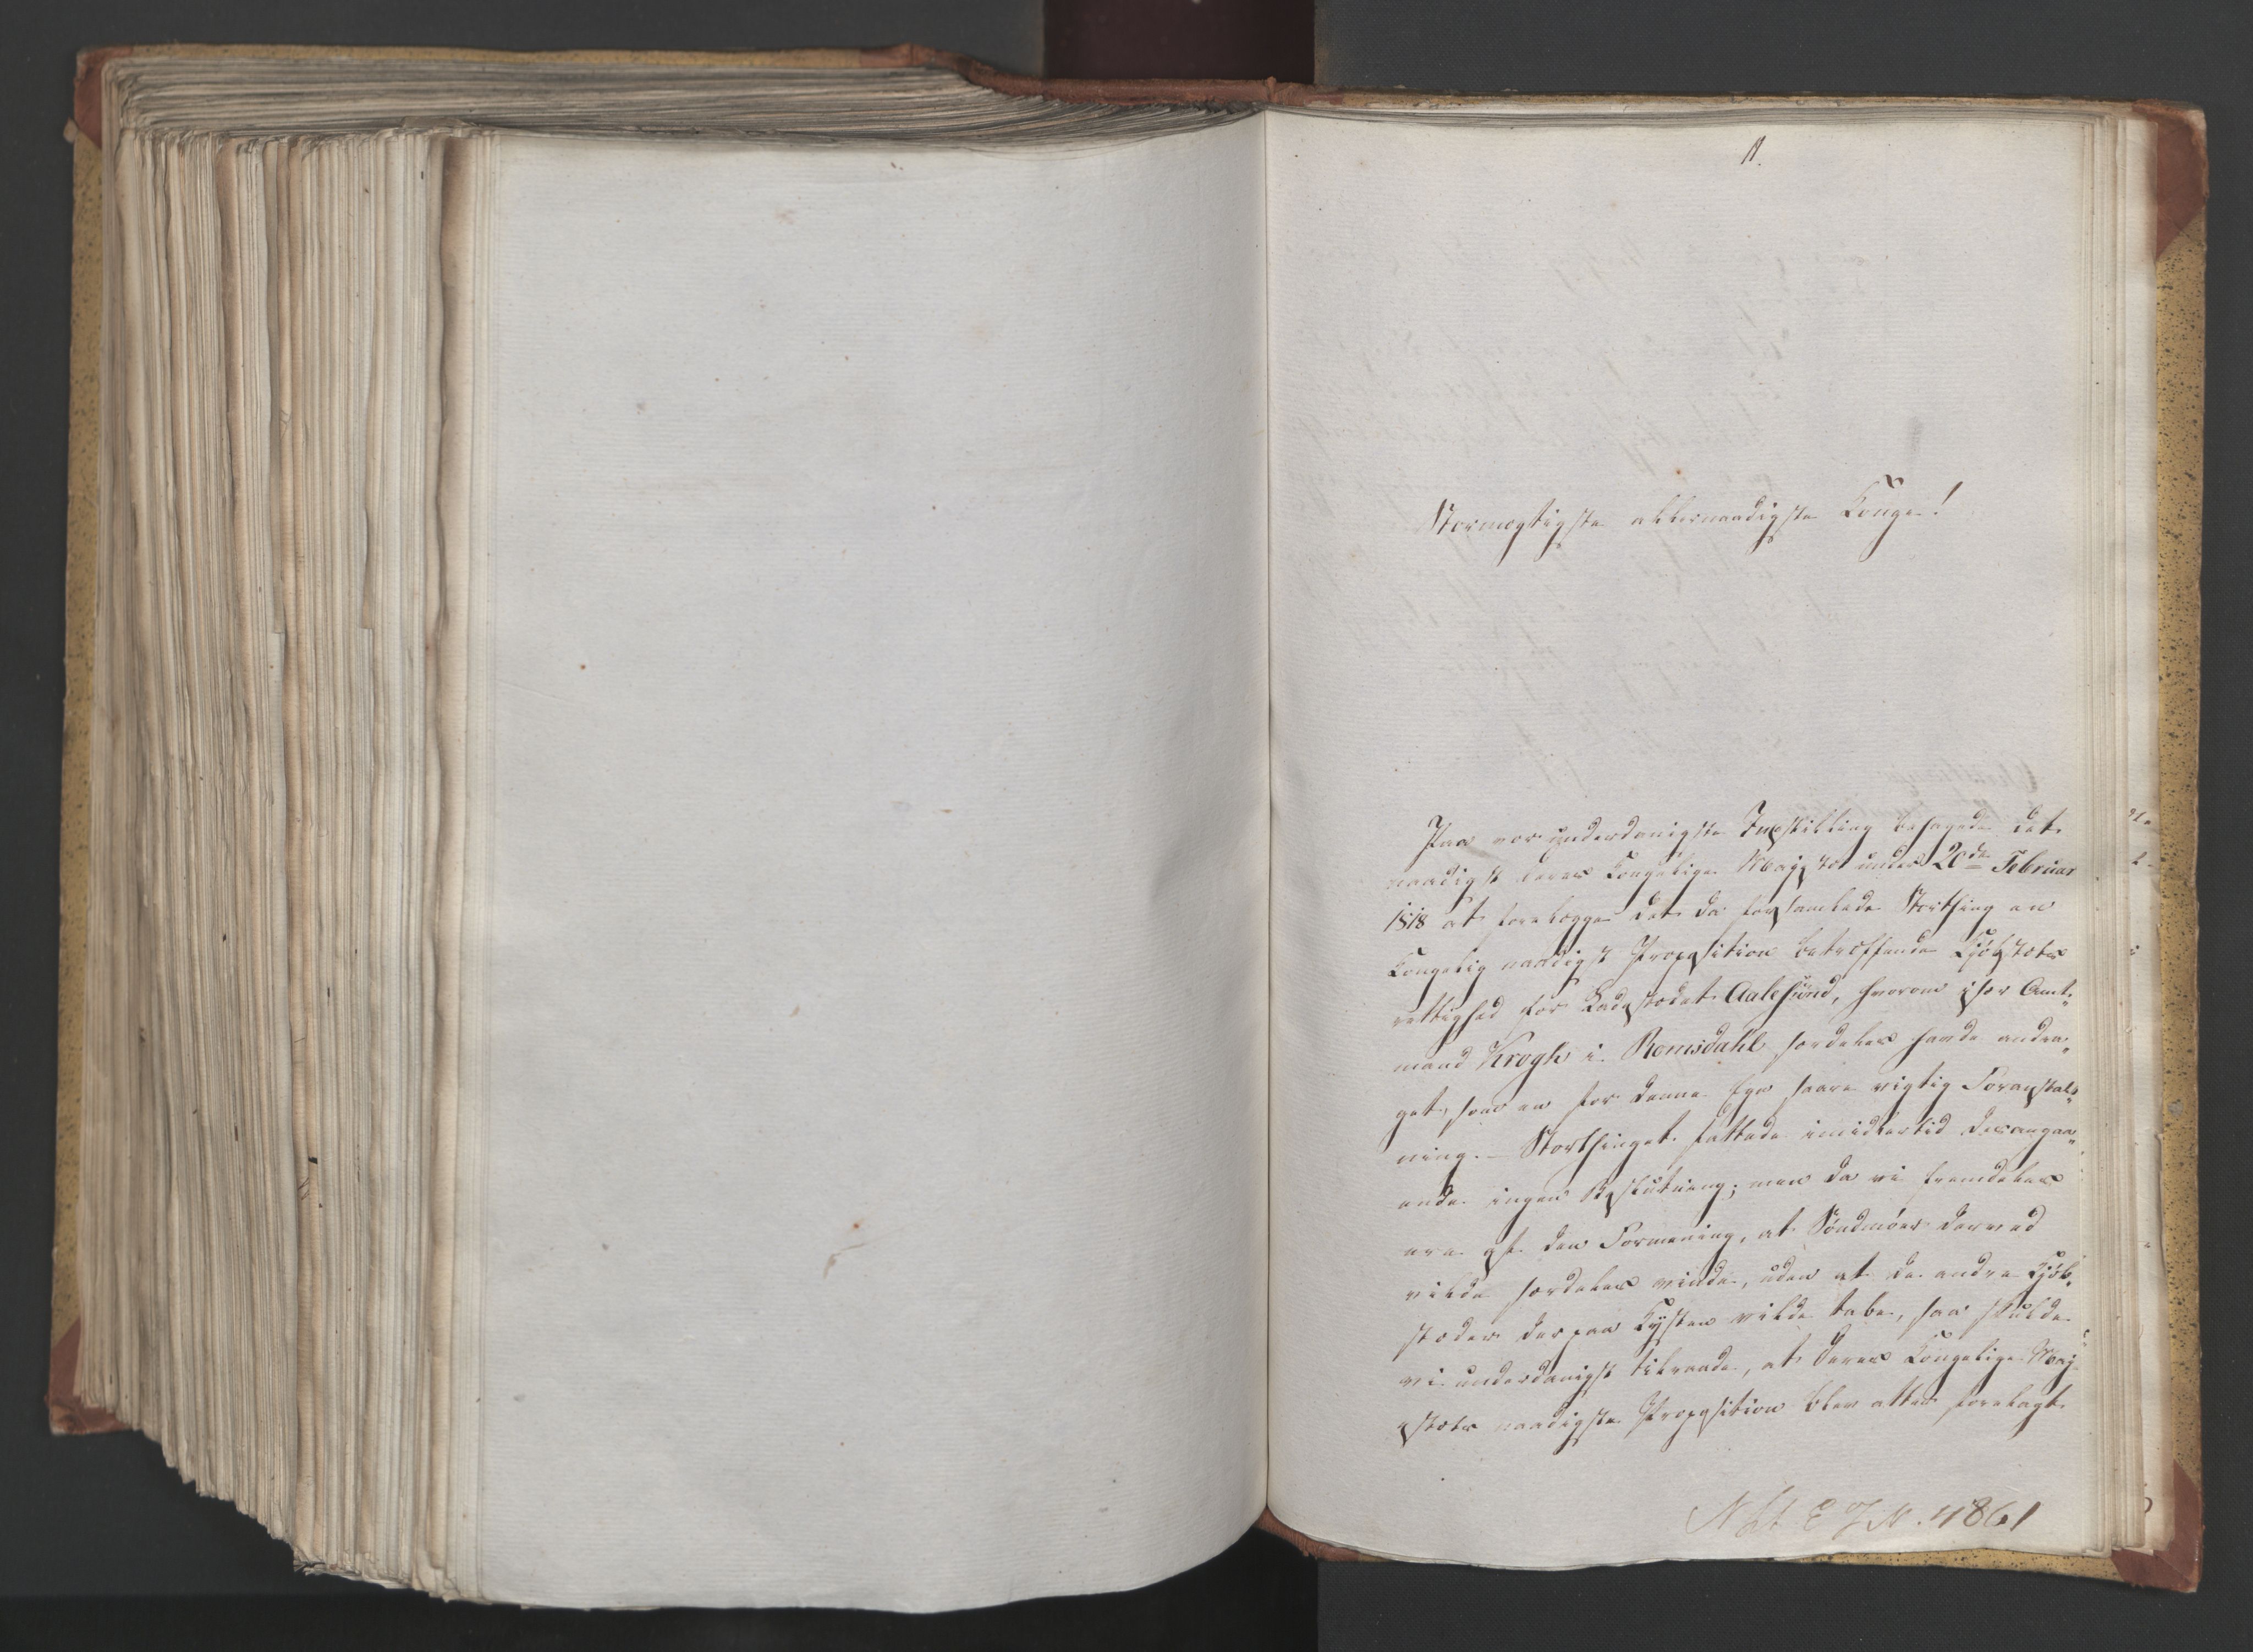 11.
Stormægtigste allernaadigste Konge!
Paa vor underdanigste Indstilling behagede det
naadigst Deres Kongelige Majestæt under 20de Februar
1818 at forelægge det da forsamlede Storthing en
Kongelig naadigst Proposition betræffende Kjøbstæds
rettighed for Ladestædet Aalesund, hvorom især Amt„
mand Krogh i Romsdahl særdeles havde andra„
get, som en for denne Egn saare vigtig Foranstalt„
ning. – Storthinget fattede imidlertid desangaa„
ende ingen Beslutning; men da vi fremdeles
ere af den Formening, at Søndmøer derved
vilde særdeles vinde, uden at de andre Kjøb„
stæder der paa Kysten vilde tabe, saa skulde
vi underdanigst tilraade, at Deres Kongelige Maj„
estæts naadigste Proposition blev atter forelagt
1861